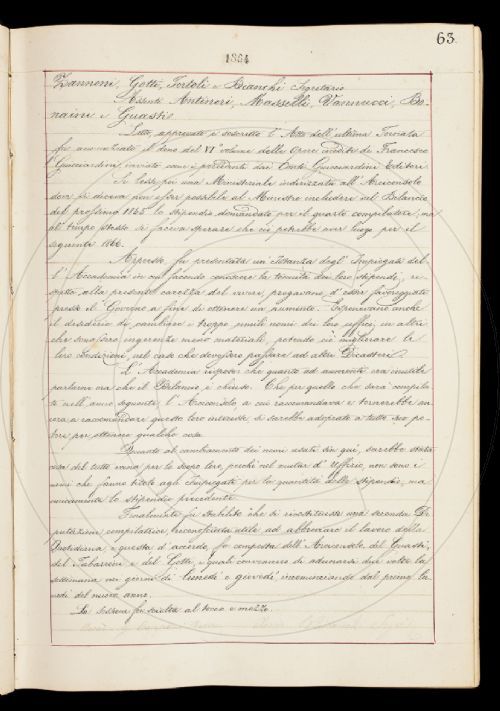 63.
1864
Zannoni, Gotti, Tortoli e Bianchi Segretario
Assenti Antinori, Masselli, Vannucci, Bo-
naini e Guasti.
Letto, approvato e soscritto l'Atto dell'ultima Tornata
fu annunziato il dono del VI° volume delle Opere inedite di Francesco
Guicciardini, inviato come i precedenti dai Conti Guicciardini Editori.
Si lesse poi una Ministeriale indirizzata all'Arciconsolo
dove si diceva non esser possibile al Ministro includere nel Bilancio
del prossimo 1865 lo stipendio domandato per il quarto compilatore, ma
al tempo stesso si faceva sperare che ciò potrebbe aver luogo per il
seguente 1866.
Appresso fu presentata un'Istanza degl'Impiegati del-
l'Accademia in cui facendo conoscere la tenuità dei loro stipendi, ri-
spetto alla presente carezza del vivere, pregavano d'esser favoreggiati
presso il Governo a fine di ottenere un aumento. Esprimevano anche
il desiderio di cambiare i troppo umili nomi dei loro uffici, in altri
che senassero ingerenze meno materiali, potendo ciò migliorare la
loro condizione, nel caso che dovessero passare ad altri Dicasteri.
L'Accademia rispose che quanto ad aumento era inutile
parlarne ora che il Bilancio è chiuso. Che per quello che sarà compila-
to nell'anno seguente l'Arciconsolo, a cui raccomandava e tornerebbe an-
cora a raccomandare questo loro interesse, si sarebbe adoprato a tutto suo po-
tere per ottenere qualche cosa.
Quanto al cambiamento dei nomi usati fin qui, sarebbe stata
cosa del tutto vana per lo scopo loro, perchè nel mutar d'Uffizio, non sono i
nomi che fanno titolo agli Impiegati per la quantità dello stipendio, ma
unicamente lo stipendio precedente.
Finalmente fu stabilito che si ricostituisse una seconda De-
putazione compilatrice, riconosciuta utile ad abbreviare il lavoro della
Quotidiana e questa d'accordo, fu composta dell'Arciconsolo, del Guasti,
del Tabarrini e del Gotti, i quali convennero di adunarsi due volte la
settimana nei giorni di lunedì e giovedì, incominciando dal primo lu-
nedì del nuovo anno.
La seduta fu sciolta al tocco e mezzo.